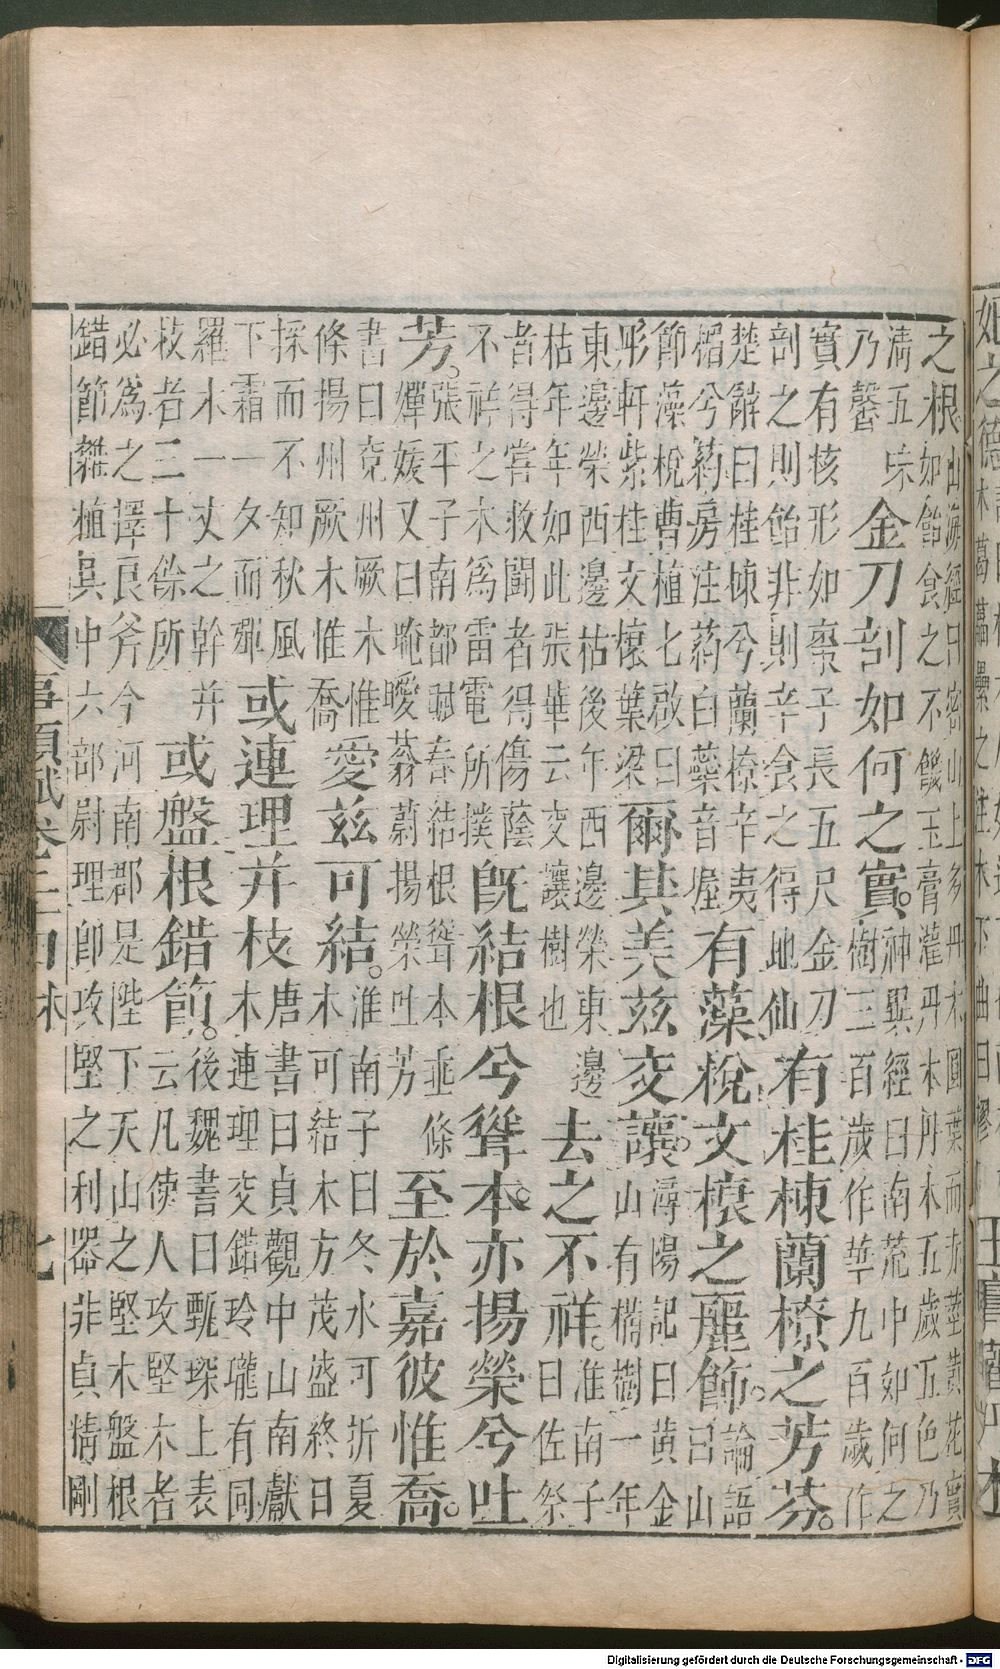 之根山海經曰密山上多丹木圓葉而赤莖黃花實如飴食之不饑玉膏灌丹木丹木五歲五色乃
清五味乃馨金刀剖如何之實。神異經曰南荒中如何之樹三百歲作華九百歲作
實有核形如棗子長五尺金刀剖之則飴非則辛食之得地仙有桂棟蘭橑之芳芬。
楚辭曰桂棟兮蘭橑辛夷楣兮葯房注葯白藥音握有藻梲文櫰之麗飾。論語曰山
節藻梲曹植七啟曰彤軒紫桂文櫰葉梁爾其美茲交讓。潯陽記曰黃金山有橘樹一年
東邊榮西邊枯後年西邊榮東邊枯年年如此張華云交讓樹也去之不祥。淮南子曰佐祭
者得嘗救鬬者得傷蔭不祥之木為雷電所撲旣結根兮聳本。亦揚榮兮吐
芳。張平子南都賦春結根聳本垂條燀媛又曰晻曖蓊蔚揚榮吐芳至於嘉彼惟喬。
書曰兗州厥木惟條揚州厥木惟喬愛茲可結。淮南子曰冬水可折夏木可結木方茂盛終日
採而不知秋風下霜一夕而殫或連理并枝唐書曰貞觀中山南獻木連理交錯玲瓏有同
羅木一丈之幹并枝者三十餘所或盤根錯節。後魏書曰甄琛上表云凡使人攻堅木者
必為之擇良斧今河南郡是陛下天山之堅木盤根錯節雜植其中六部尉理卽攻堅之利器非貞精剛
事類賦卷二十四 木 七
Digitalisierung gefördert durch die Deutsche Forschungsgemeinschaft - DFG